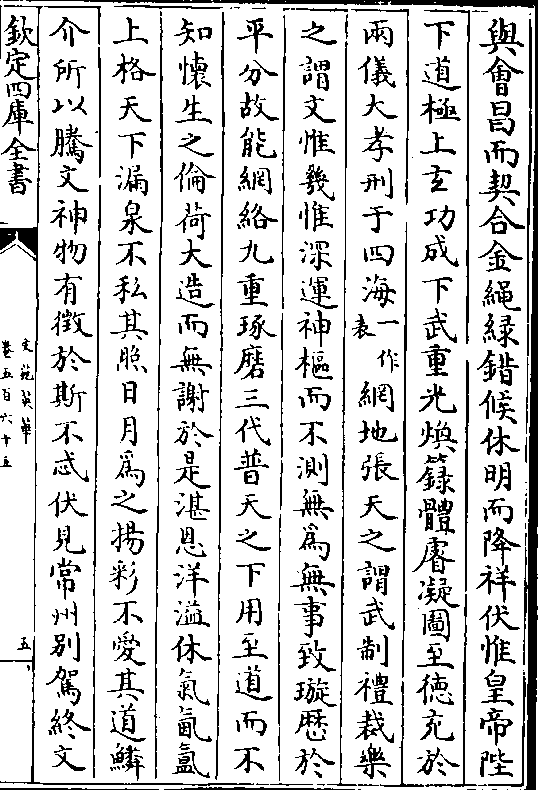 與會昌而契合金繩緑錯候休明而降祥伏惟皇帝陛
下道極上𤣥功成下武重光煥籙體睿凝圖至德充於
兩儀大孝刑于四海一作表網地張天之謂武制禮裁樂
之謂文惟幾惟深運神樞而不測無為無事致璇厯於
平分故能網絡九重琢磨三代普天之下用至道而不
知懷生之倫荷大造而無謝於是湛恩洋溢休氣氤氲
上格天下漏泉不私其照日月為之揚彩不愛其道鱗
介所以騰文神物有徵於斯不忒伏見常州别駕終文
欽定四庫全書
文苑英華
卷五百六十五
五